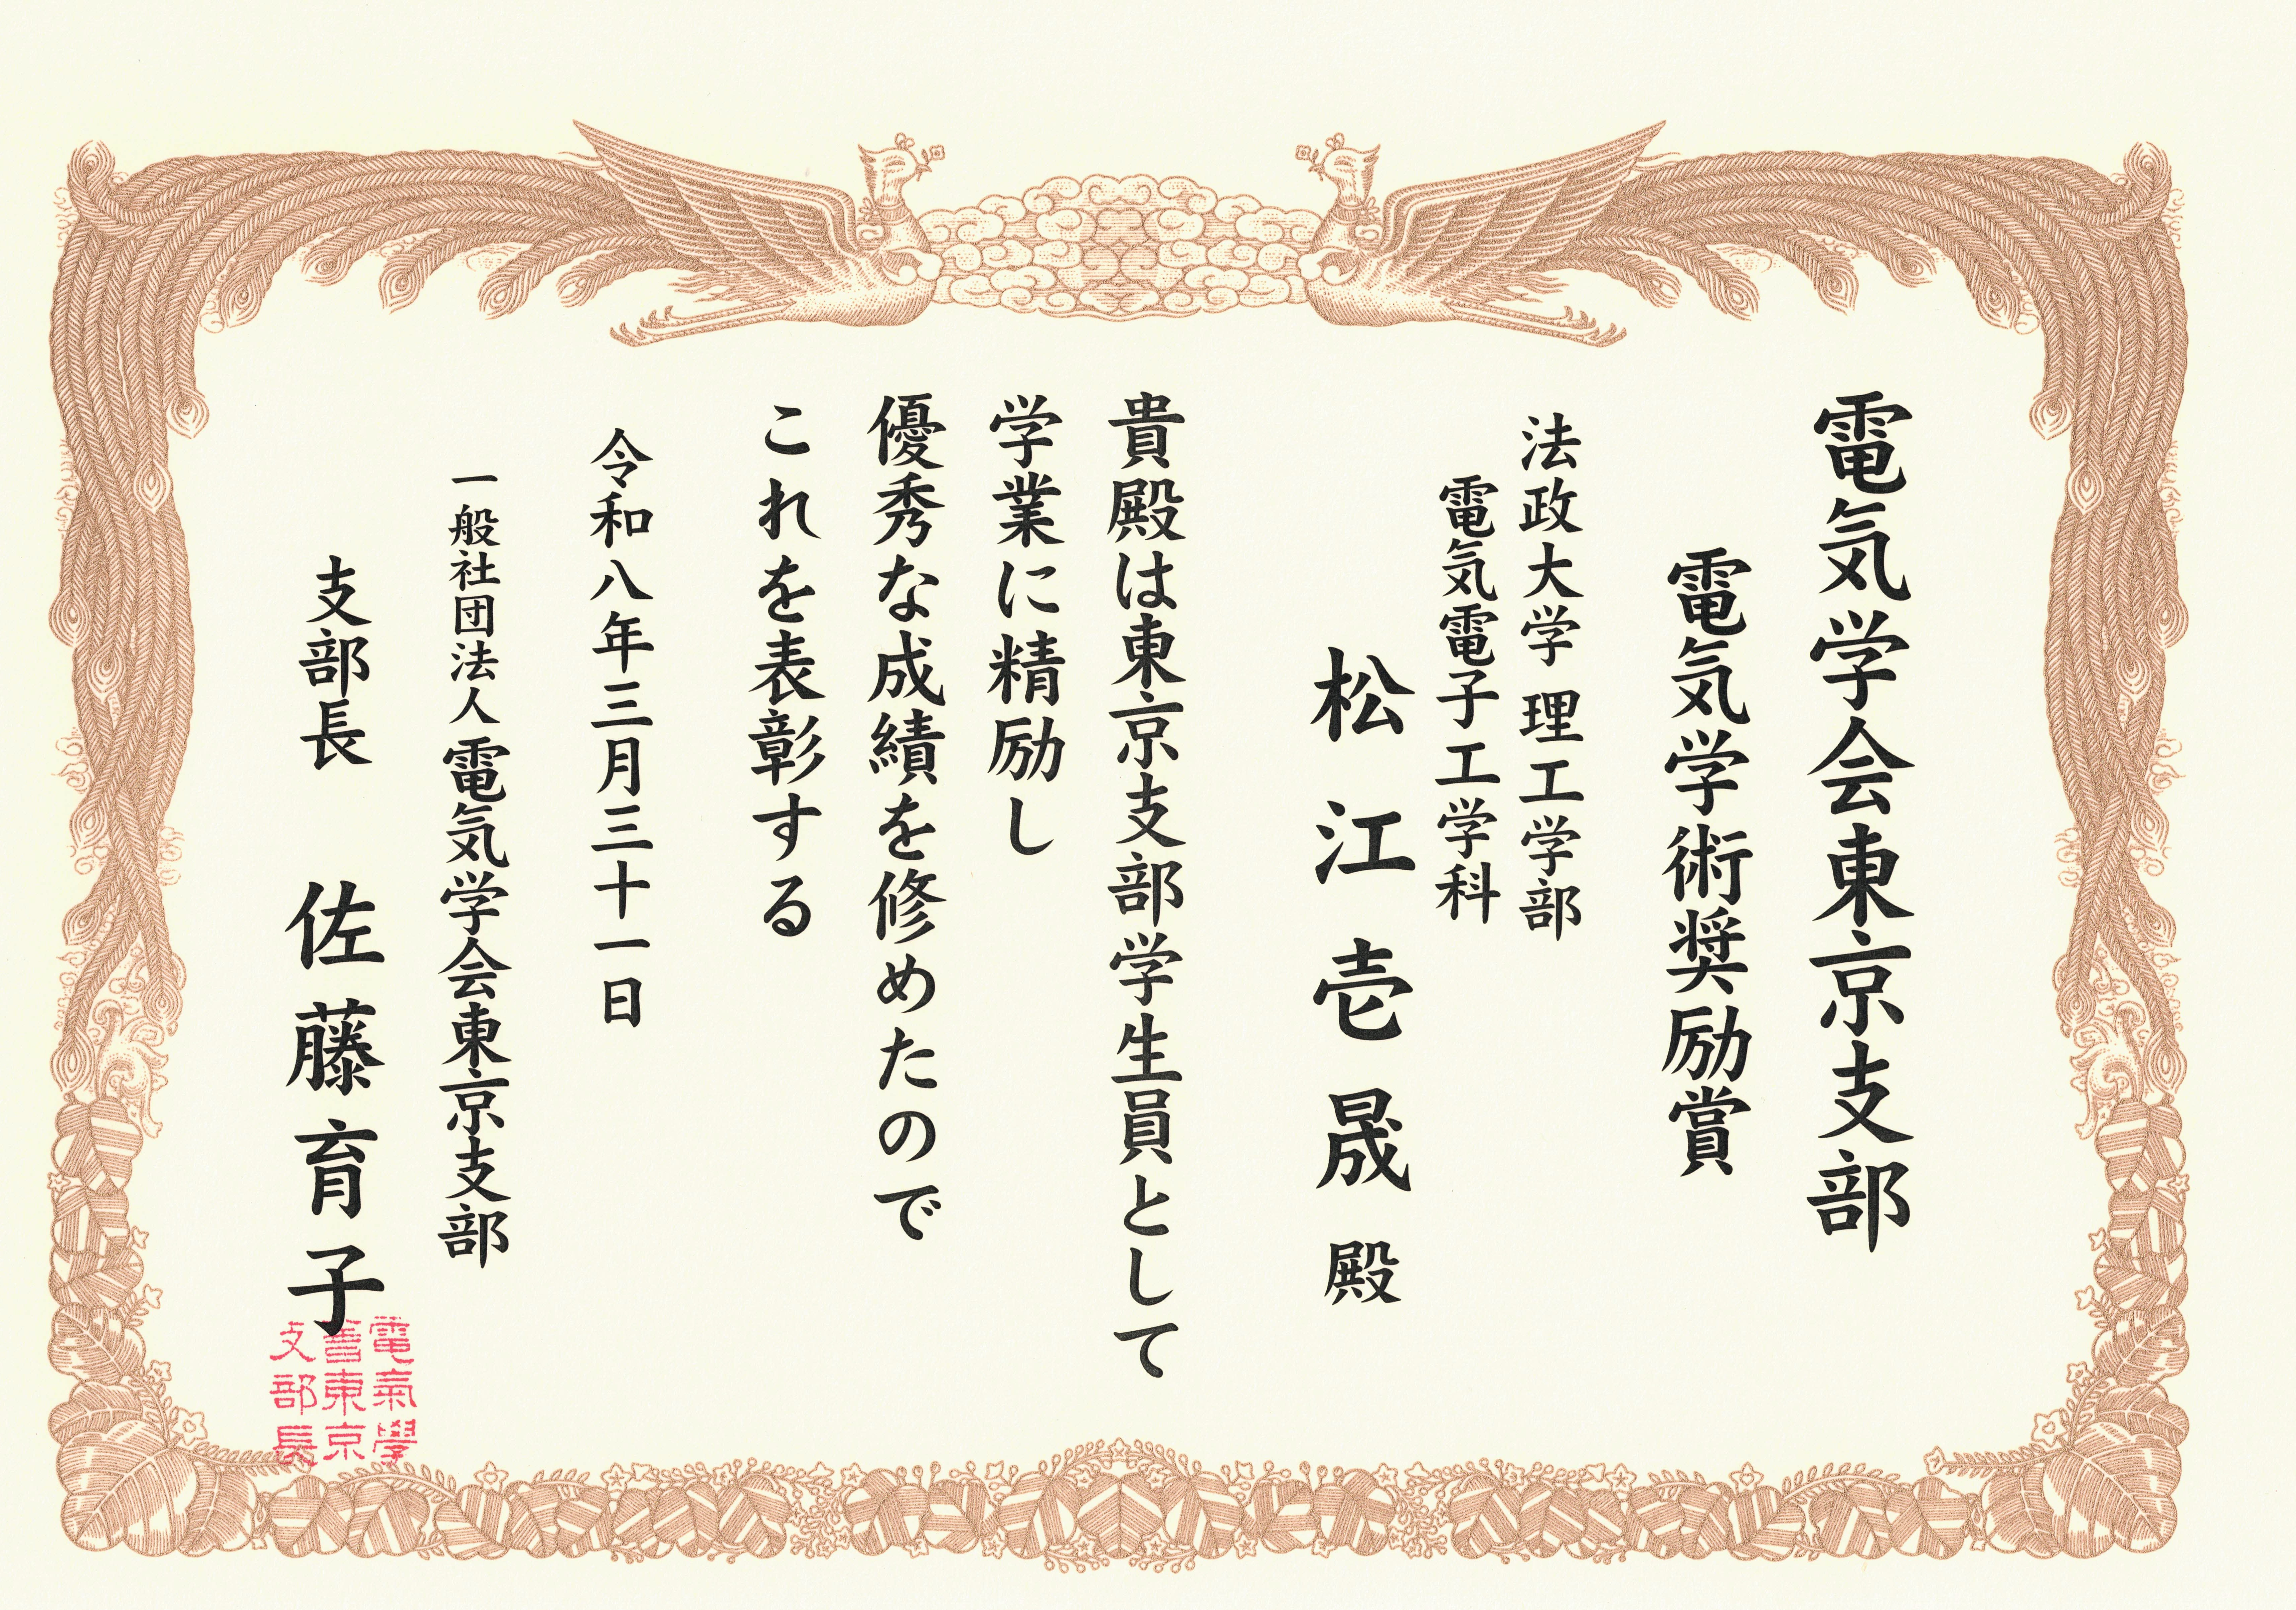 電気学会東京支部
電気学術奨励賞
法政大学 理工学部
電気電子工学科
松江壱晟 殿
貴殿は東京支部学生員として
学業に精励し
優秀な成績を修めたので
これを表彰する
令和八年三月三十一日
一般社団法人 電気学会東京支部
支部長 佐藤育子
電氣學
會東京
支部長